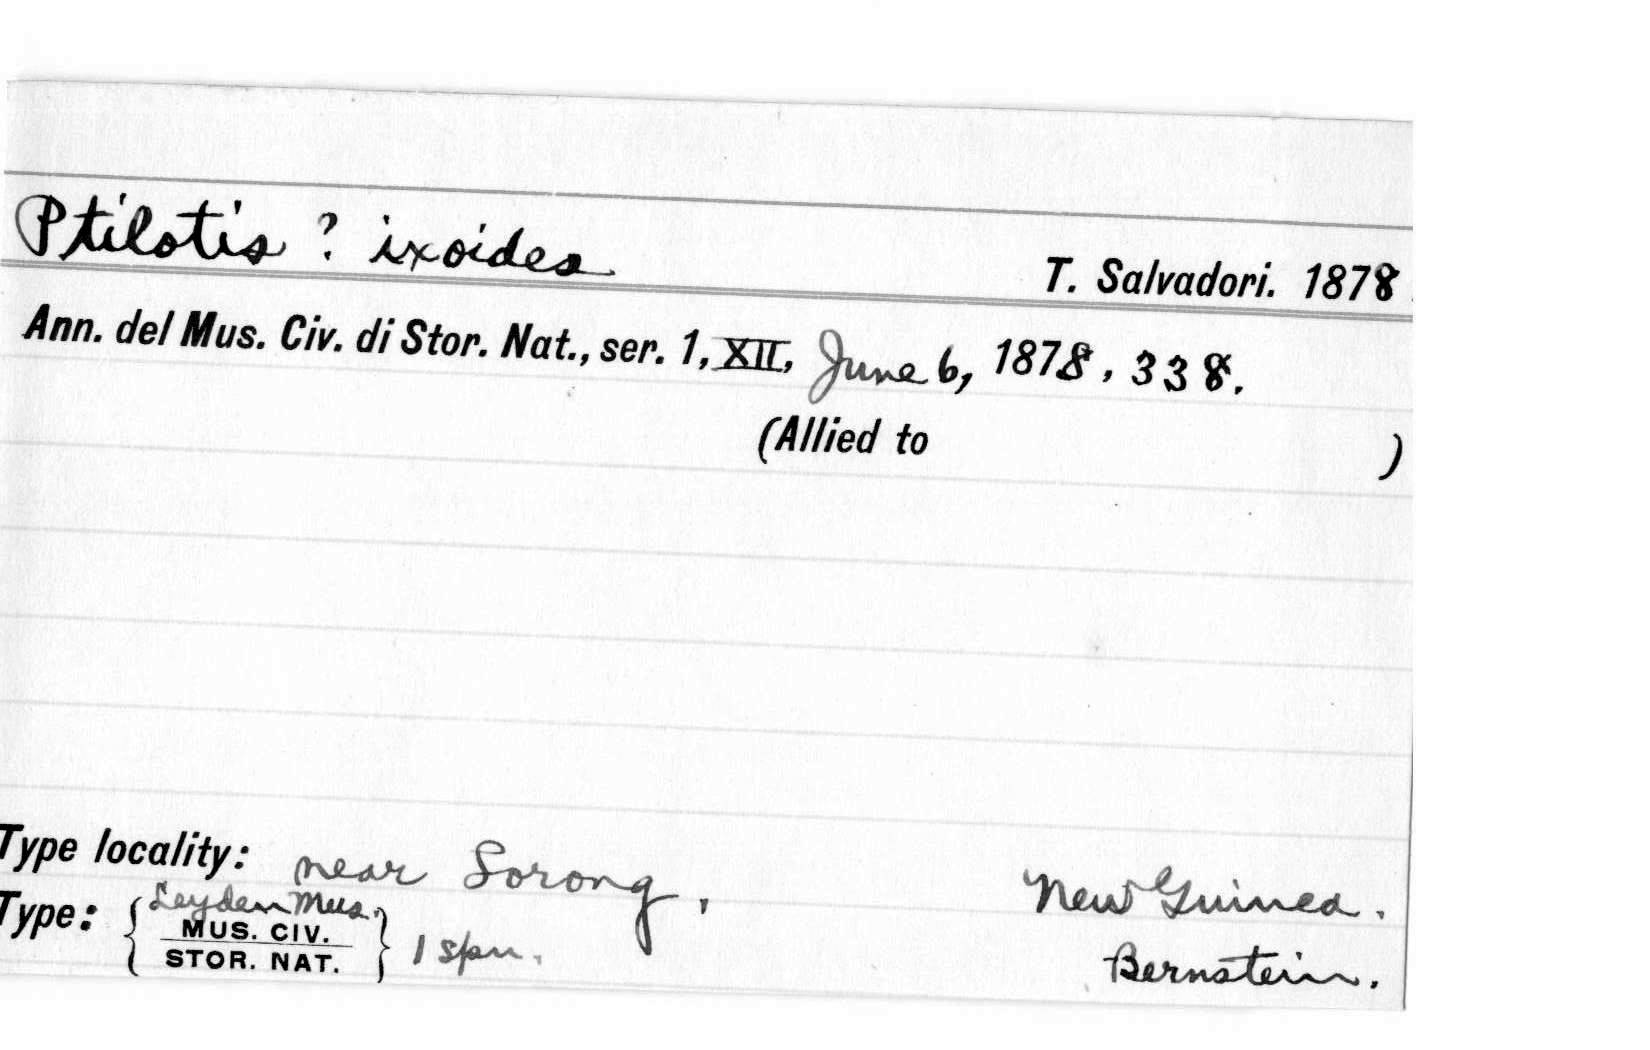 Ptilotis ? ixoides
T. Salvadori. 1878
Ann. del Mus. Civ. di Stor. Nat., ser. 1, XII, June 6, 1878, 338.
(Allied to )
Type locality: near Sorong, New Guinea.
Type: { Leyden Mus. MUS. CIV. STOR. NAT. } 1 spn. Bernstein.